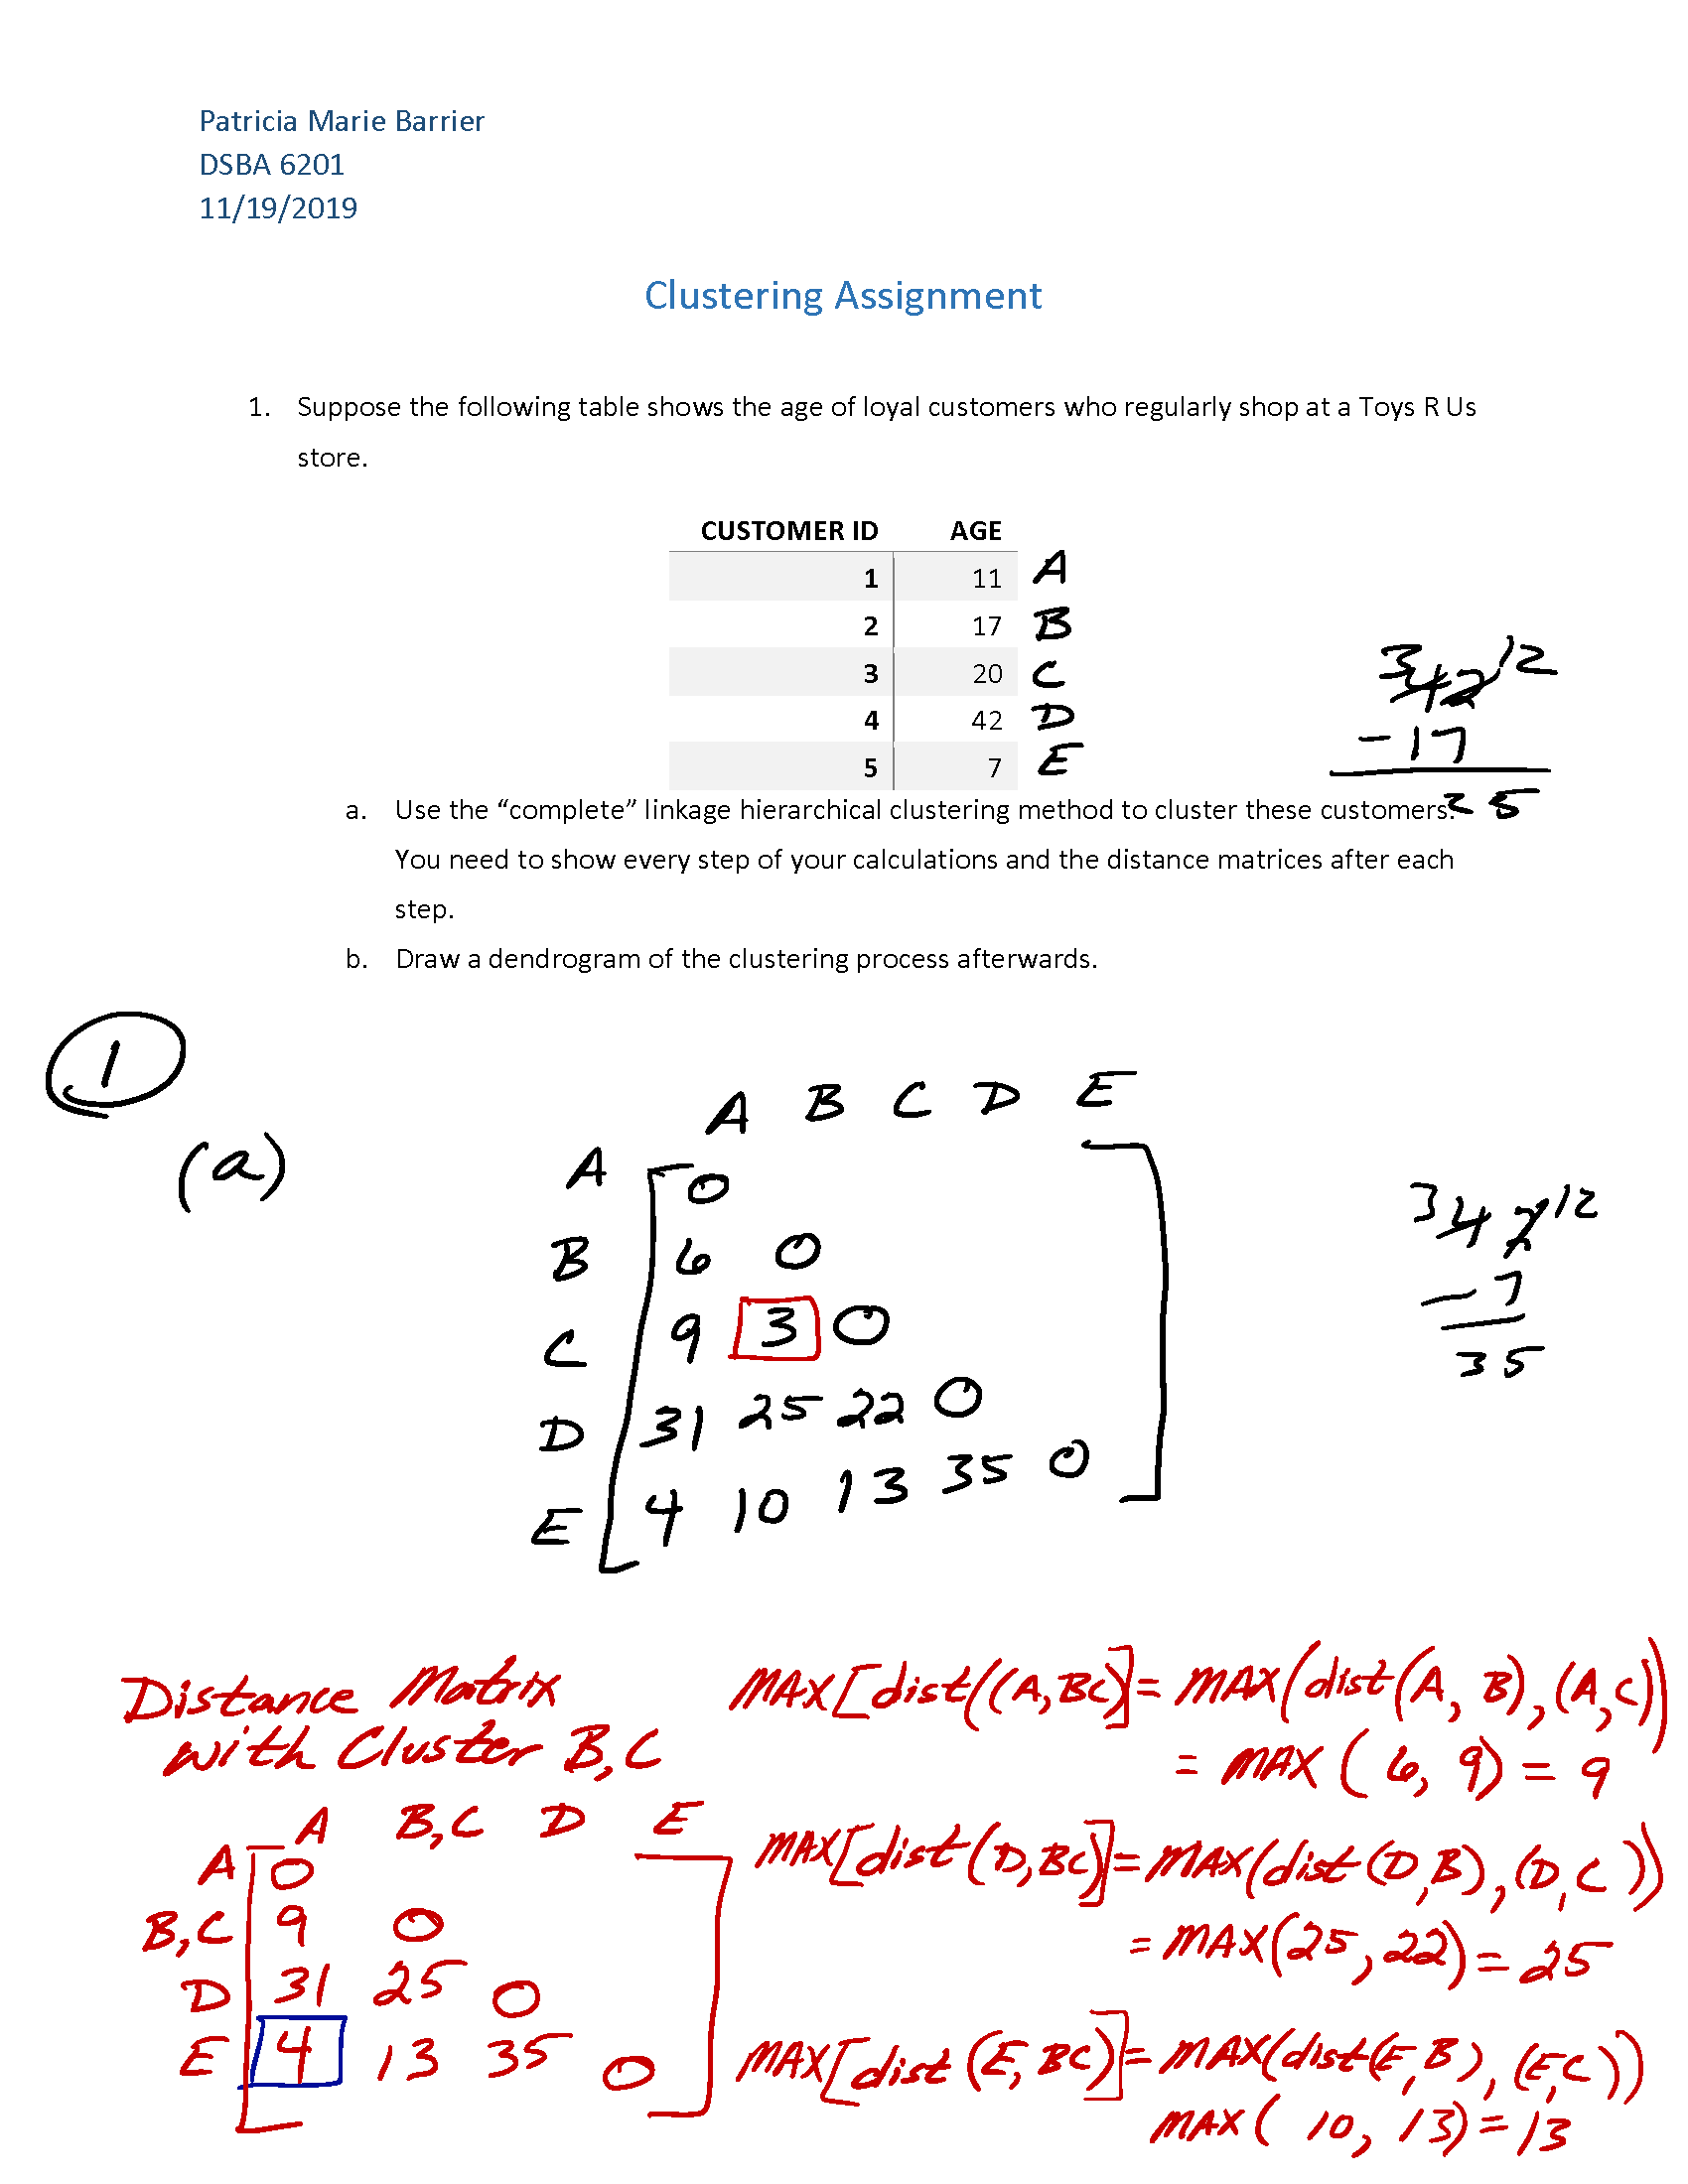 Patricia Marie Barrier
DSBA 6201
11/19/2019
Clustering Assignment
1. Suppose the following table shows the age of loyal customers who regularly shop at a Toys R Us
store.
CUSTOMER ID AGE
1 11 A
2 17 B
3 20 C
4 42 D
5 7 E
3 42 12
- 17
25
a. Use the “complete” linkage hierarchical clustering method to cluster these customers.
You need to show every step of your calculations and the distance matrices after each
step.
b. Draw a dendrogram of the clustering process afterwards.
1
(a)
A B C D E
A 0
B 6 0
C 9 3 0
D 31 25 22 0
E 4 10 13 35 0
3 42 12
- 7
35
Distance Matrix
with Cluster B,C
A B,C D E
A 0
B,C 9 0
D 31 25 0
E 4 13 35 0
MAX[dist((A,BC)]= MAX(dist(A, B),(A,C))
= MAX ( 6, 9) = 9
MAX[dist(D,BC)]=MAX(dist(D,B),(D,C))
= MAX(25,22)=25
MAX[dist(E,BC)]=MAX(dist(E,B),(E,C))
MAX( 10, 13)=13